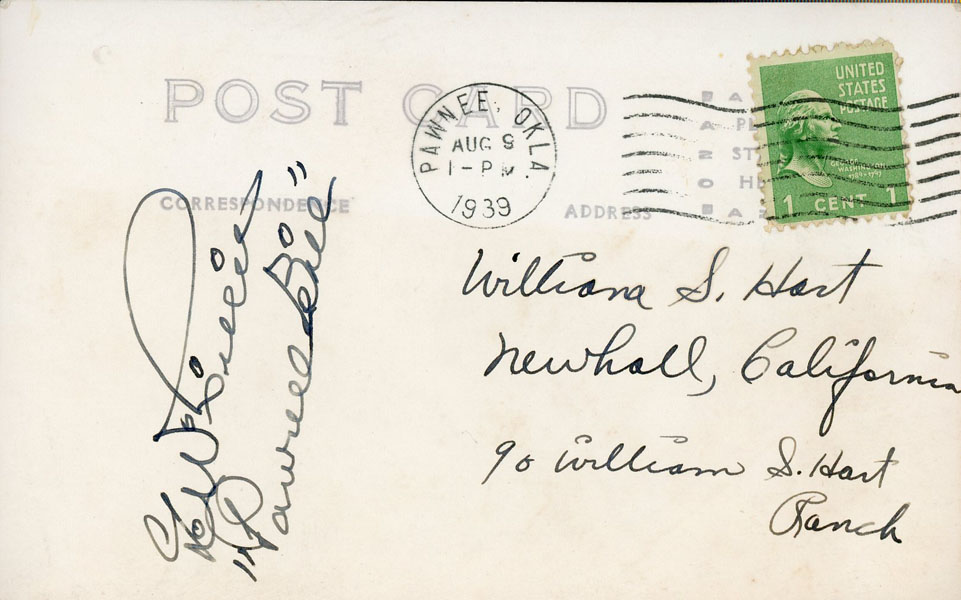 POST CARD
CORRESPONDENCE
ADDRESS
PAWNEE, OKLA
AUG 9
1-PM
1939
UNITED
STATES
POSTAGE
GEORGE
WASHINGTON
1789-1797
1 CENT 1
G W Lillie
"Pawnee Bill"
William S. Hart
Newhall, California
% William S. Hart
Ranch